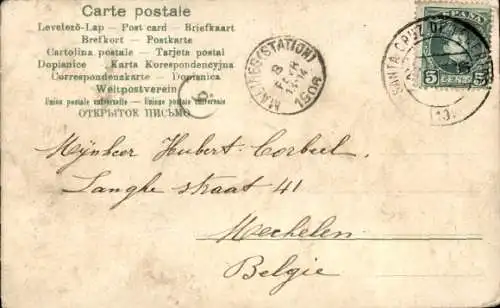 Carte postale
Levelező-Lap — Post card — Briefkaart
Brefkort — Postkarte
Cartolina postale — Tarjeta postal
Dopisnice — Karta Korespondencyjna
Correspondenzkarte — Dopisnica
Weltpostverein
Union postale universelle — Unione postale universale
ОТКРЫТОЕ ПИСЬМО
ESPAÑA
5 CENTS 5
SANTA CRUZ DE
(STATION)
1905
Mijnheer Hubert Corbeel.
Langhe straat 41
Mechelen
Belgie